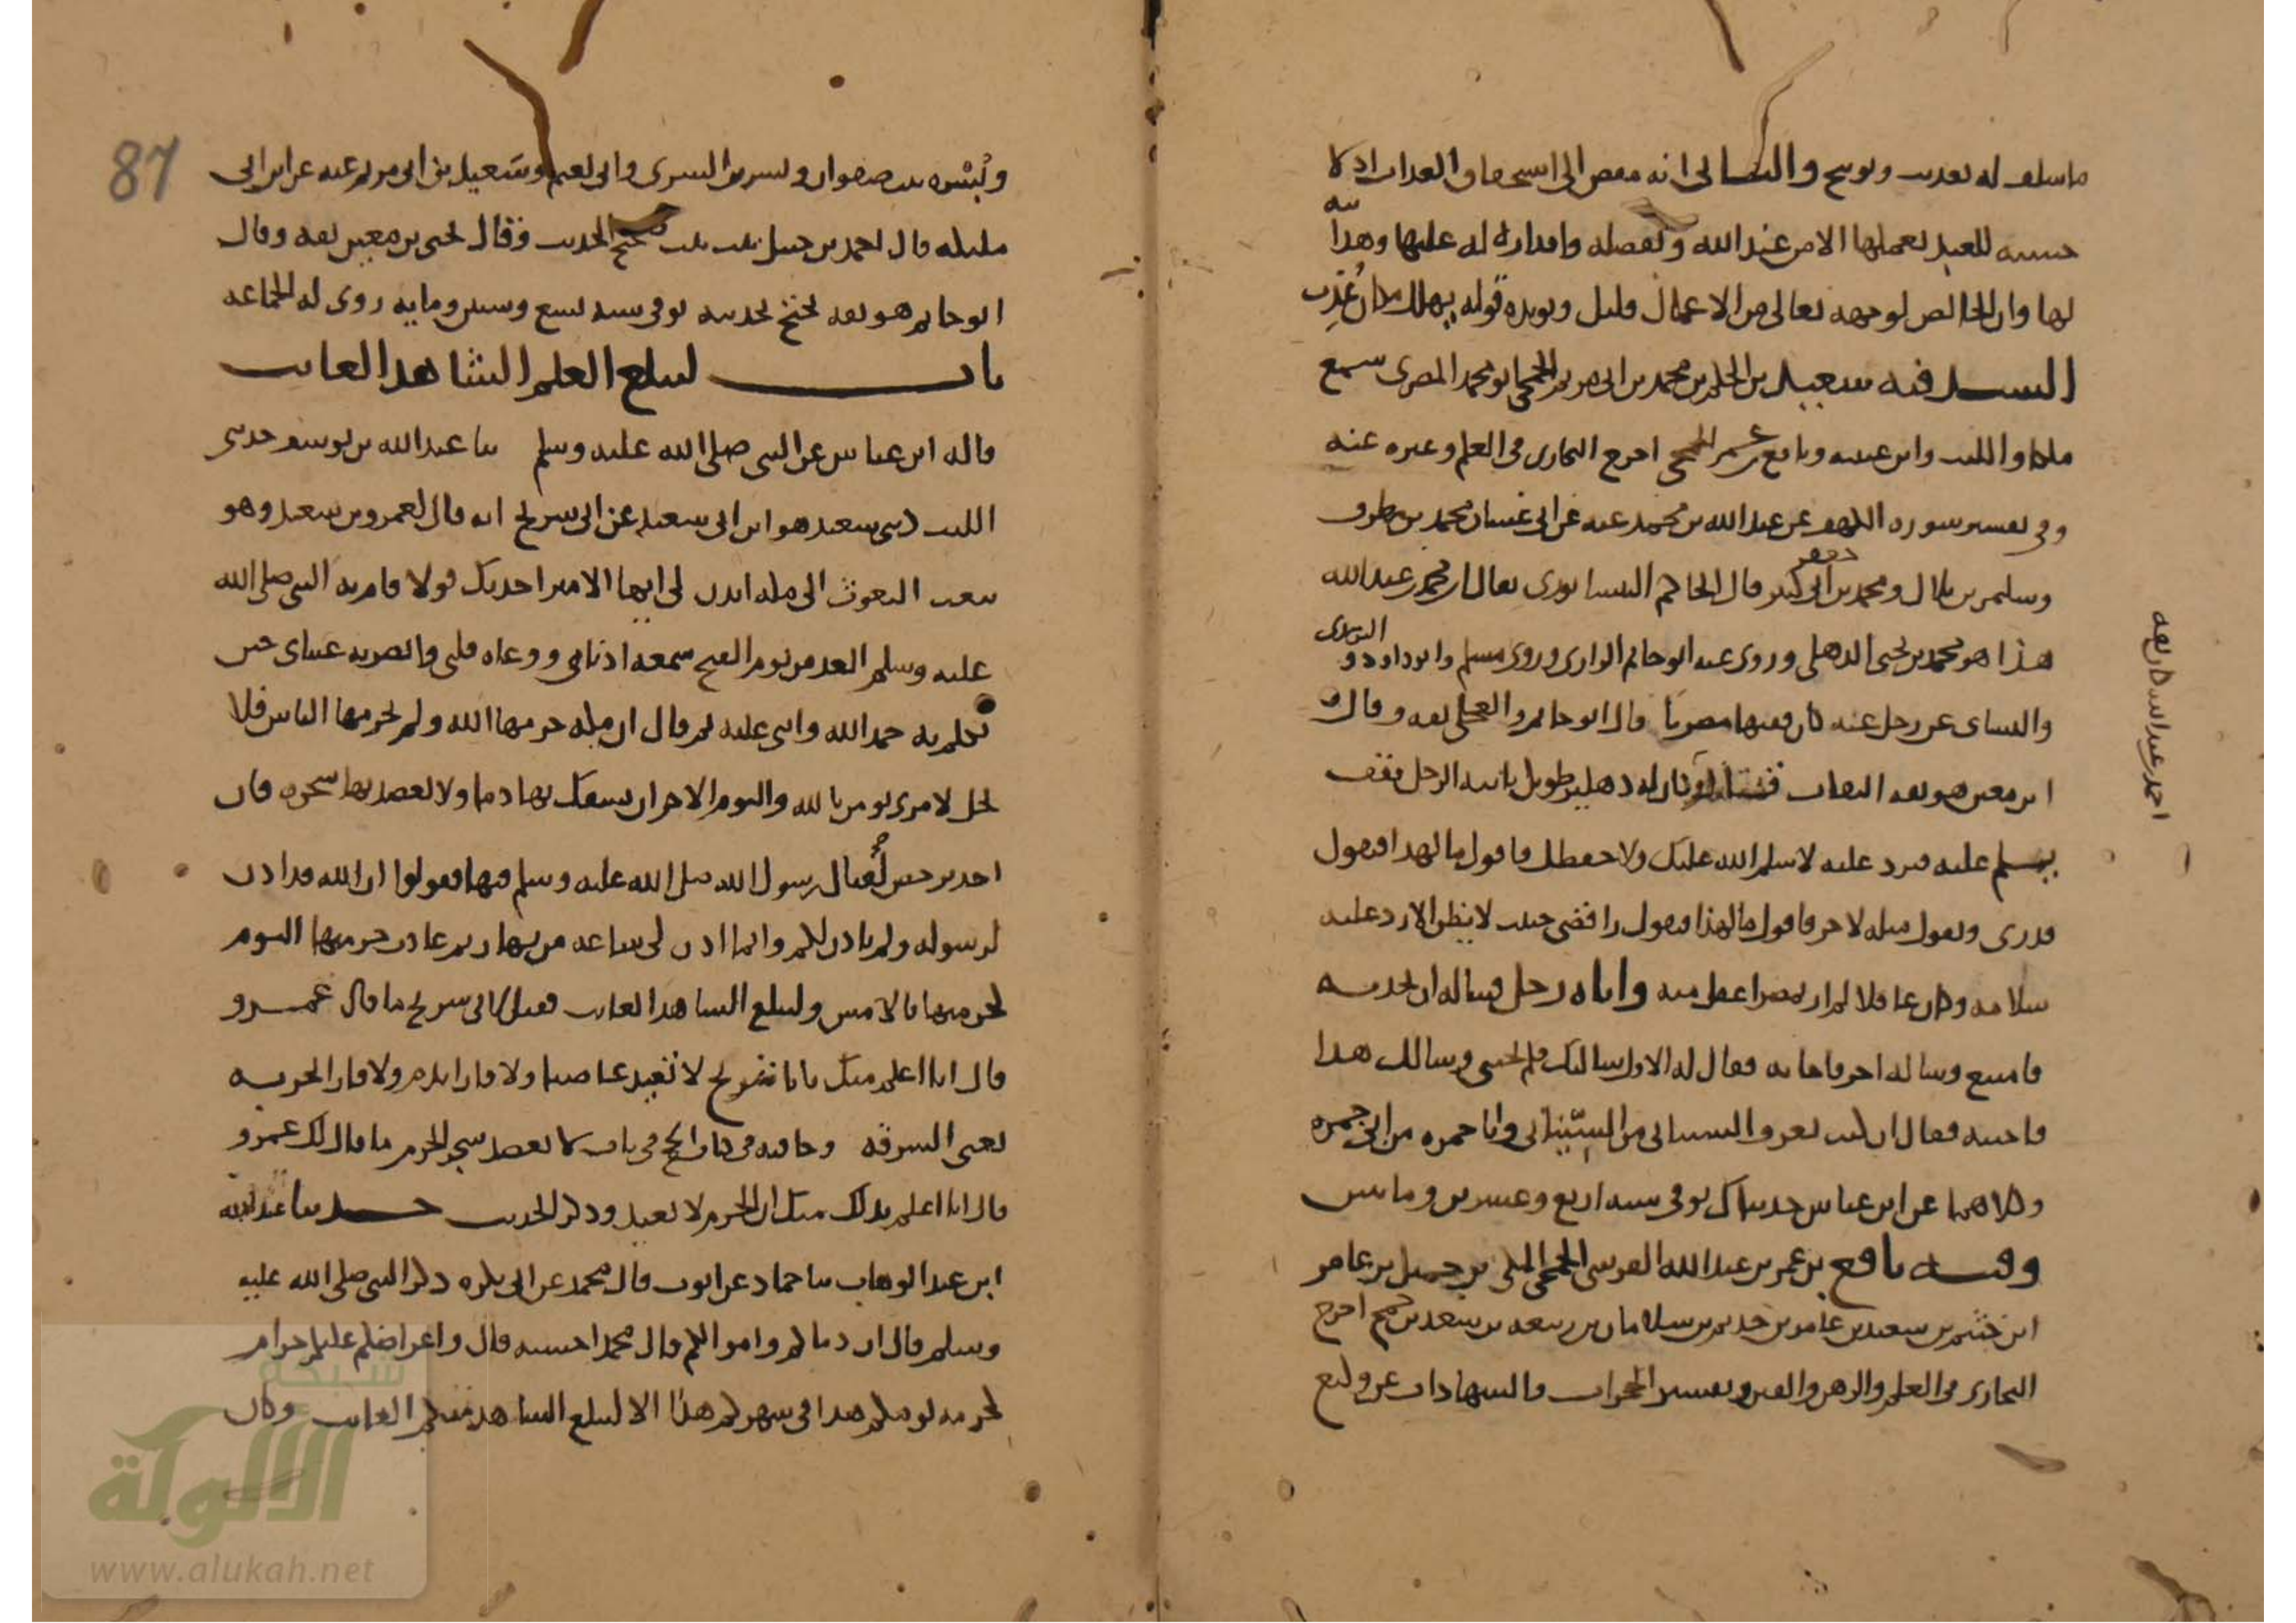 ما سلف له تعذيب وتوبيخ والثاني انه مفض الى استحقاق العذاب اذ لا
حسنة للعبد يعملها الا من عند الله وتفضله واقداره له عليها وهدايته
لها وان الخالص لوجهه تعالى من الاعمال قليل ويويده قوله يهلك مكان عُذِّب
السند فيه سعيد بن الحكم بن محمد بن ابي مريم الجمحي ابو محمد المصري سمع
مالكا والليث وابن عيينة ونافع بن عمر الجمحي اخرج البخاري في العلم وغيره عنه
وفي تفسير سورة الكهف عن عبد الله بن محمد عنه عن ابي غسان محمد بن مطرف
وسليمن بن بلال ومحمد بن ابي كثير جعفر قال الحاكم النيسابوري يقال ان محمد بن عبد الله
هذا هو محمد بن يحيى الذهلي وروى عنه ابو حاتم الرازي وروى مسلم وابو داود والترمذي
والنساى عن رجل عنه كان فقيها مصريا قال ابو حاتم والعجلي ثقه وقال
ابن معين هو ثقه الثقات كان له دهليز طويل ياتيه الرجل فيقف
يسلم عليه فيرد عليه لا سلم الله عليك ولا حفظك فاقول ما لهذا فيقول
قدري ويقول مثله لاخر فاقول ما لهذا فيقول رافضي خبيث لا يظن الا رد عليه
سلامه وكان عاقلا لم ار بمصر اعقل منه واتاه رجل فساله ان يحدثه
فامتنع وساله اخر فاجابه فقال له الاول سالتك فلم تجبني وسالك هذا
فاجبته فقال ان كنت تعرف الشيباني من السيناني وابا حمزه من ابي جمره
وكلاهما عن ابن عباس حدثناك توفي سنه اربع وعشرين ومايتين
وفيه نافع بن عمر بن عبد الله القرشي الجمحي المكي بن جميل بن عامر
ابن خثيم بن سعيد بن عامر بن حذيم بن سلامان بن ربيعه بن سعد بن جمح اخرج
البخاري في العلم والرهن والفتن وتفسير الحجرات والشهادات عن وكيع
احمد عبد الله كان ثقه
87
ويُسْره بن صفوان وبشر بن السري وابي نعيم وسَعيد بن ابي مريم عنه عن ابن ابي
مليكه قال احمد بن حنبل ثبت ثبت صحيح الحديث وقال يحيى بن معين ثقه وقال
ابو حاتم هو ثقه يحتج بحديثه توفي سنه تسع وستين ومايه روى له الجماعه
باب ليبلغ العلم الشاهد الغايب
قاله ابن عباس عن النبي صلى الله عليه وسلم ثنا عبد الله بن يوسف حدثني
الليث حدثني سعيد هو ابن ابي سعيد عن ابي شريح انه قال لعمرو بن سعيد وهو
يبعث البعوث الى مكه ايذن لي ايها الامير احدثك قولا قام به النبي صلى الله
عليه وسلم الغد من يوم الفتح سمعته اذناي ووعاه قلبي وابصرته عيناى حين
تكلم به حمد الله واثنى عليه ثم قال ان مكه حرمها الله ولم يحرمها الناس فلا
يحل لامرى يومن بالله واليوم الاخر ان يسفك بها دما ولا يعضد بها شجره فان
احد ترخص لقتال رسول الله صلى الله عليه وسلم فيها فقولوا ان الله قد اذن
لرسوله ولم ياذن لكم وانما اذن لي ساعه من نهار ثم عادت حرمتها اليوم
كحرمتها بالامس وليبلغ الشاهد الغايب فقيل لابي شريح ما قال عمرو
قال انا اعلم منك يابا شريح لا تُعيذ عاصيا ولا فارا بدم ولا فارا بخربه
يعني السرقه وجا فيه في كتاب الحج في باب لا يعضد شجر الحرم ما قال لك عمرو
قال انا اعلم بذلك منك ان الحرم لا يعيذ وذكر الحديث حدثنا عبد الله
ابن عبد الوهاب ثنا حماد عن ايوب قال محمد عن ابي بكره ذكر النبي صلى الله عليه
وسلم قال ان دماكم واموالكم قال محمد احسبه قال واعراضكم عليكم حرام
كحرمه يومكم هذا في شهركم هذا الا ليبلغ الشاهد منكم الغايب وكان
شبكة
الألوكة
www.alukah.net